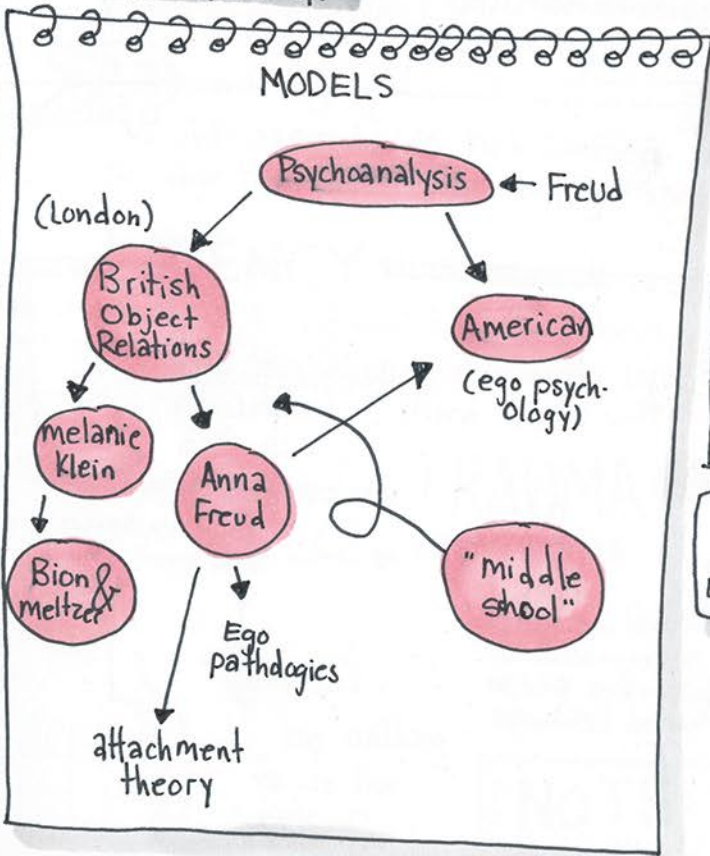 MODELS
Psychoanalysis
Freud
(London)
British
Object
Relations
American
(ego psych-
ology)
melanie
Klein
Anna
Freud
Bion &
meltzer
"middle
shool"
Ego
pathdogies
attachment
theory